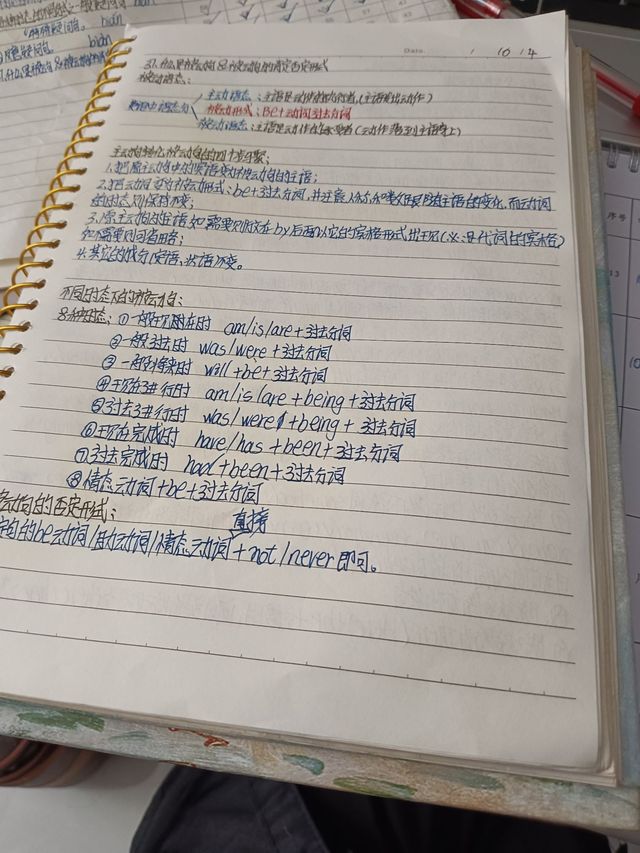 Date. / 10 / 4
31.什么是被动句及被动句的肯定否定形式
被动语态:
主动语态:主语是动作的执行者(主语发出动作)
英语中语态分
被动形式:be+动词过去分词
被动语态:主语是动作的承受者(动作落到主语身上)
主动句转化被动句的四个步骤:
1.把原主动句中的宾语变为被动句的主语;
2.把动词变为被动形式:be+过去分词,并注意人称和数随主语的变化,而动词
的时态则保持不变;
3.原主动句的主语如需要则放在by后面以它的宾格形式出现(注:是代词的宾格)
如不需要则可省略;
4.其它的成分(定语,状语)不变。
不同时态下的被动句:
8种时态:①一般现在时 am/is/are+过去分词
②一般过去时 was/were+过去分词
③一般将来时 will+be+过去分词
④现在进行时 am/is/are+being+过去分词
⑤过去进行时 was/were+being+过去分词
⑥现在完成时 have/has+been+过去分词
⑦过去完成时 had+been+过去分词
⑧情态动词+be+过去分词
动句的否定形式:
直接
定句的be动词/助动词/情态动词+not/never即可。
序号
13